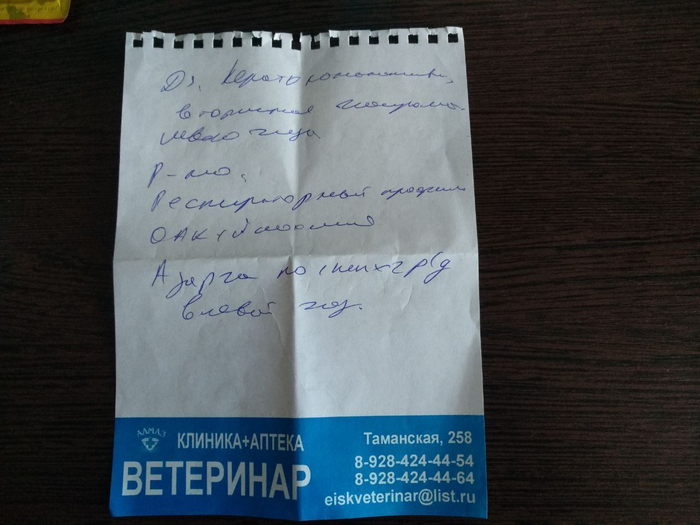 Ds. Кератоконъюнктивит,
вторичная глаукома
левого глаза
Р-но.
Респираторный профиль
ОАК + биохимия
Азарга по 1 кап х 2 р/д
в левый глаз.
АЛМАЗ
КЛИНИКА+АПТЕКА
ВЕТЕРИНАР
Таманская, 258
8-928-424-44-54
8-928-424-44-64
eiskveterinar@list.ru